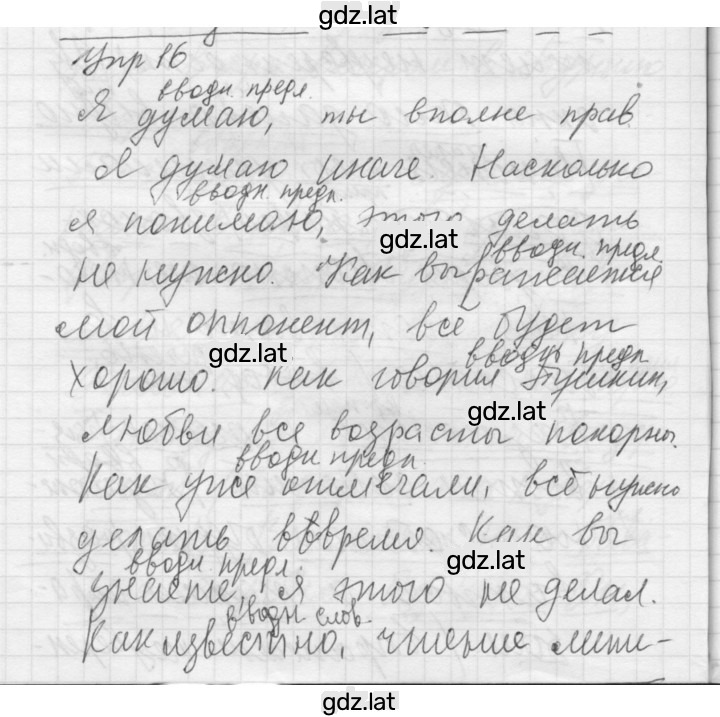 gdz.lat
Упр 16
вводн. предл.
Я думаю, ты вполне прав.
Я думаю иначе. Насколько
вводн. предл.
я понимаю, этого делать
gdz.lat
вводн. предл.
не нужно. Как выражается
мой оппонент, всё будет
gdz.lat
вводн предл
хорошо. Как говорил Пушкин,
gdz.lat
любви все возрасты покорны.
вводн предл.
Как уже отмечали, всё нужно
делать вовремя. Как вы
gdz.lat
вводн предл.
знаете, я этого не делал.
вводн слов.
Как известно, чтение лите-
gdz.lat